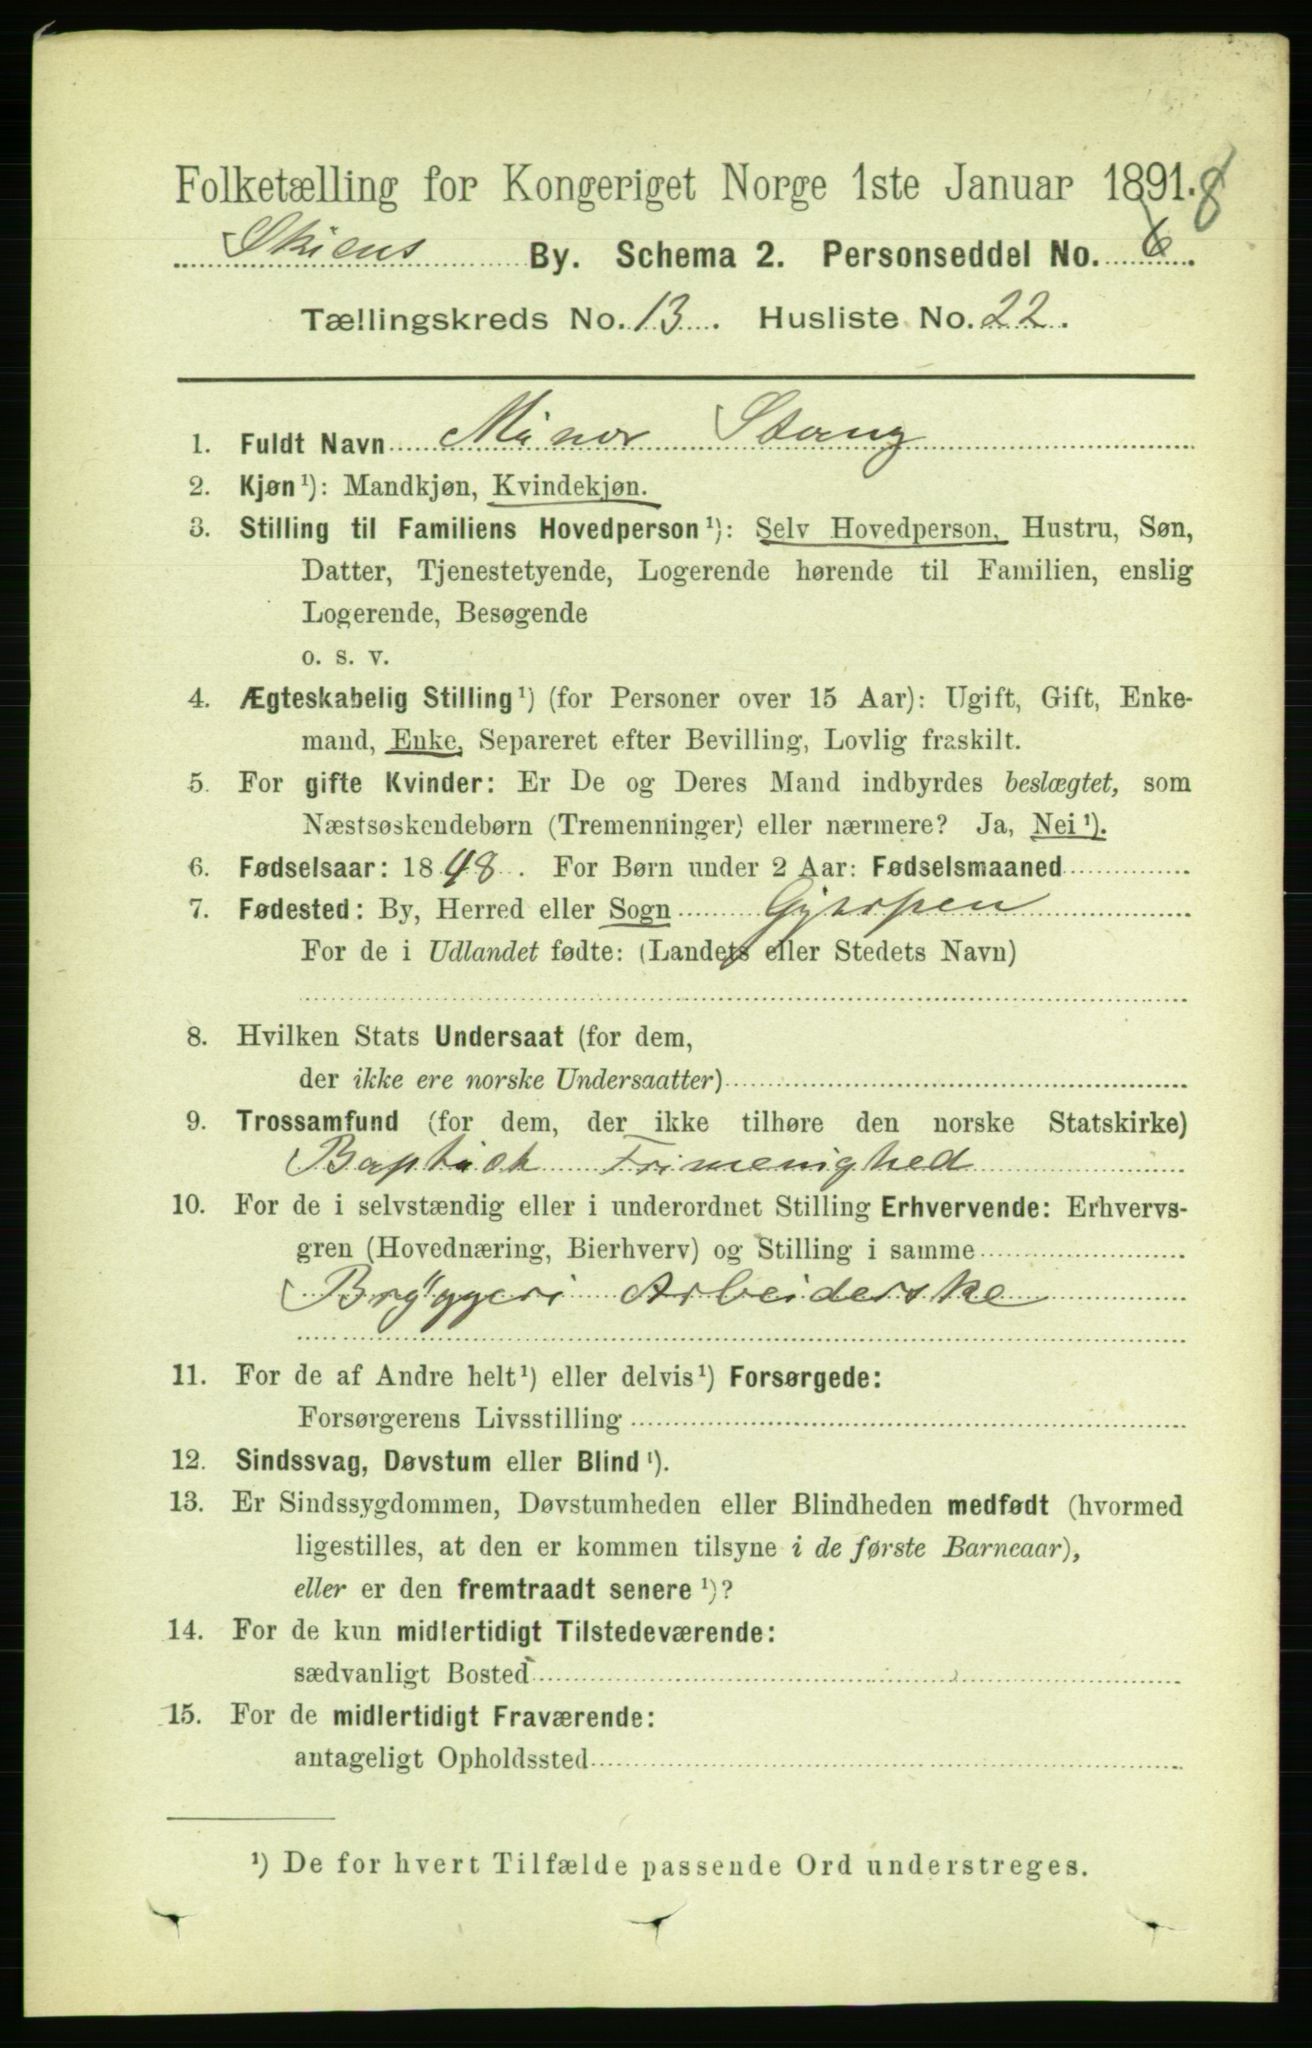 Folketælling for Kongeriget Norge 1ste Januar 1891. 8
Skiens By. Schema 2. Personseddel No. 6.
Tællingskreds No. 13. Husliste No. 22.
1. Fuldt Navn Minor Stang
2. Kjøn¹): Mandkjøn, Kvindekjøn.
3. Stilling til Familiens Hovedperson¹): Selv Hovedperson, Hustru, Søn,
Datter, Tjenestetyende, Logerende hørende til Familien, enslig
Logerende, Besøgende
o. s. v.
4. Ægteskabelig Stilling¹) (for Personer over 15 Aar): Ugift, Gift, Enke-
mand, Enke, Separeret efter Bevilling, Lovlig fraskilt.
5. For gifte Kvinder: Er De og Deres Mand indbyrdes beslægtet, som
Næstsøskendebørn (Tremenninger) eller nærmere? Ja, Nei¹).
6. Fødselsaar: 1848. For Børn under 2 Aar: Fødselsmaaned
7. Fødested: By, Herred eller Sogn Gjerpen
For de i Udlandet fødte: (Landets eller Stedets Navn)
8. Hvilken Stats Undersaat (for dem,
der ikke ere norske Undersaatter)
9. Trossamfund (for dem, der ikke tilhøre den norske Statskirke)
Baptist Frimenighed
10. For de i selvstændig eller i underordnet Stilling Erhvervende: Erhvervs-
gren (Hovednæring, Bierhverv) og Stilling i samme
Bryggeri Arbeiderske
11. For de af Andre helt¹) eller delvis¹) Forsørgede:
Forsørgerens Livsstilling
12. Sindssvag, Døvstum eller Blind¹).
13. Er Sindssygdommen, Døvstumheden eller Blindheden medfødt (hvormed
ligestilles, at den er kommen tilsyne i de første Barneaar),
eller er den fremtraadt senere¹)?
14. For de kun midlertidigt Tilstedeværende:
sædvanligt Bosted
15. For de midlertidigt Fraværende:
antageligt Opholdssted
¹) De for hvert Tilfælde passende Ord understreges.